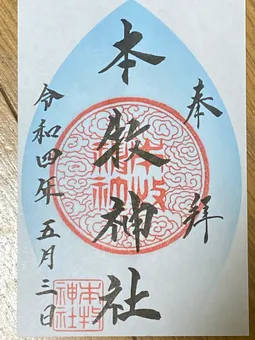 奉拝
本牧神社
本牧
神社
令和四年五月三日
本牧
神社